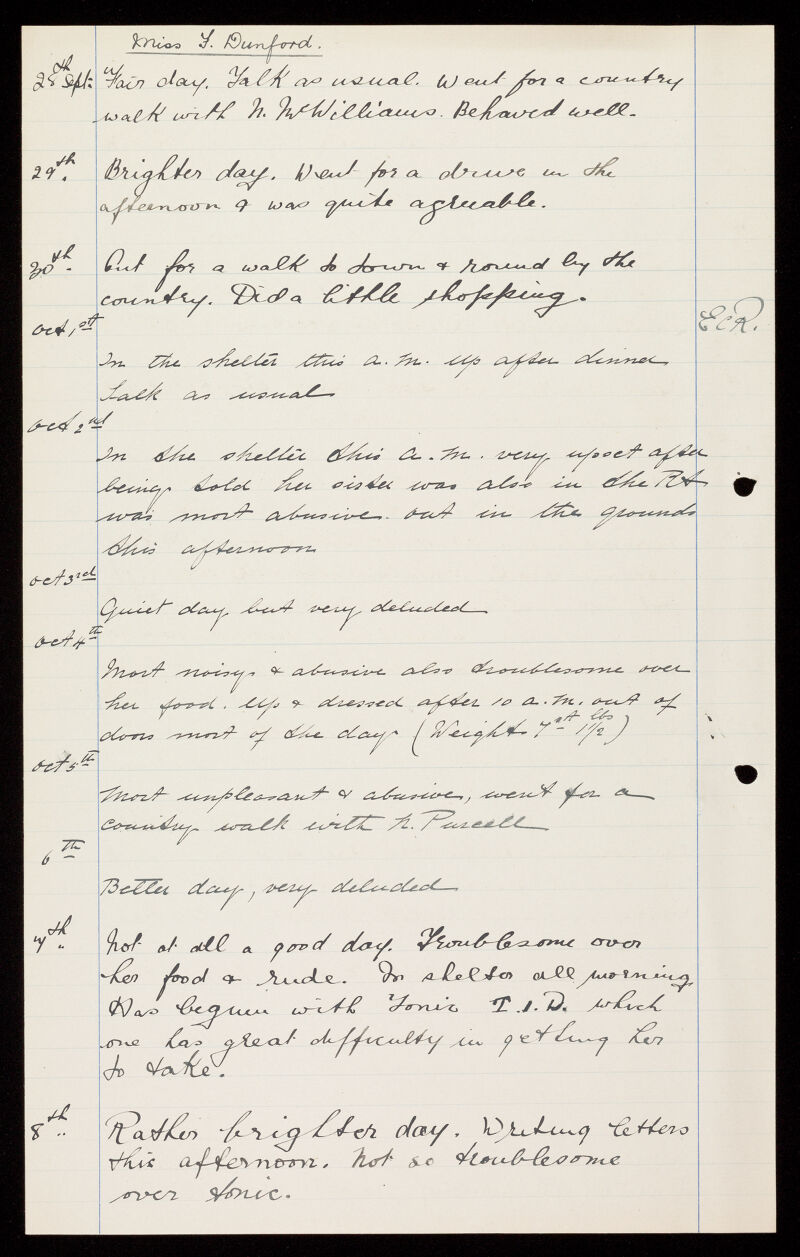 Miss F. Dunford.
28th Sept: Fair day. Talk as usual. Went for a country
walk with N. McWilliams. Behaved well.
29th. Brighter day. Went for a drive in the
afternoon & was quite agreeable.
30th. Out for a walk to town & round by the
country. Did a little shopping.
Oct 1st
E C R.
In the shelter this a.m. up after dinner
Talk as usual
Oct 2nd
In the shelter this a.m. very upset after
being told her sister was also in the Rt
was most abusive. out in the grounds
this afternoon
Oct 3rd
Quiet day but very deluded
Oct 4th
Most noisy & abusive also troublesome over
her food. Up & dressed after 10 a.m. out of
doors most of the day (Weight 7st 1 1/2 lbs)
Oct 5th
Most unpleasant & abusive, went for a
country walk with N. Purcell
6th
Better day, very deluded
7th.. Not at all a good day. Troublesome over
her food & rude. In shelter all morning.
Has begun with Tonic T.I.D. which
one has great difficulty in getting her
to take.
8th.. Rather brighter day. Writing letters
this afternoon. Not so troublesome
over tonic.